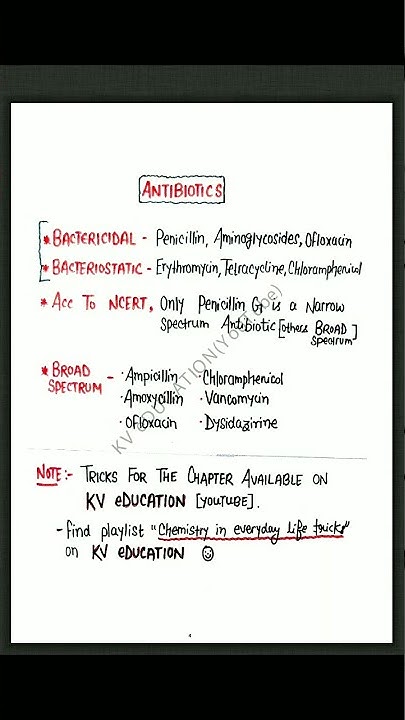 ANTIBIOTICS
* BACTERICIDAL - Penicillin, Aminoglycosides, Ofloxacin
* BACTERIOSTATIC - Erythromycin, Tetracycline, Chloramphenicol
* Acc To NCERT, Only Penicillin G is a Narrow
Spectrum Antibiotic [others BROAD
Spectrum]
* BROAD SPECTRUM -
· Ampicillin · Chloramphenicol
· Amoxycillin · Vancomycin
· Ofloxacin · Dysidazirine
KV EDUCATION (YouTube)
NOTE:- TRICKS FOR THE CHAPTER AVAILABLE ON
KV eDUCATION [YOUTUBE].
- find playlist "Chemistry in everyday life tricks"
on KV eDUCATION
4